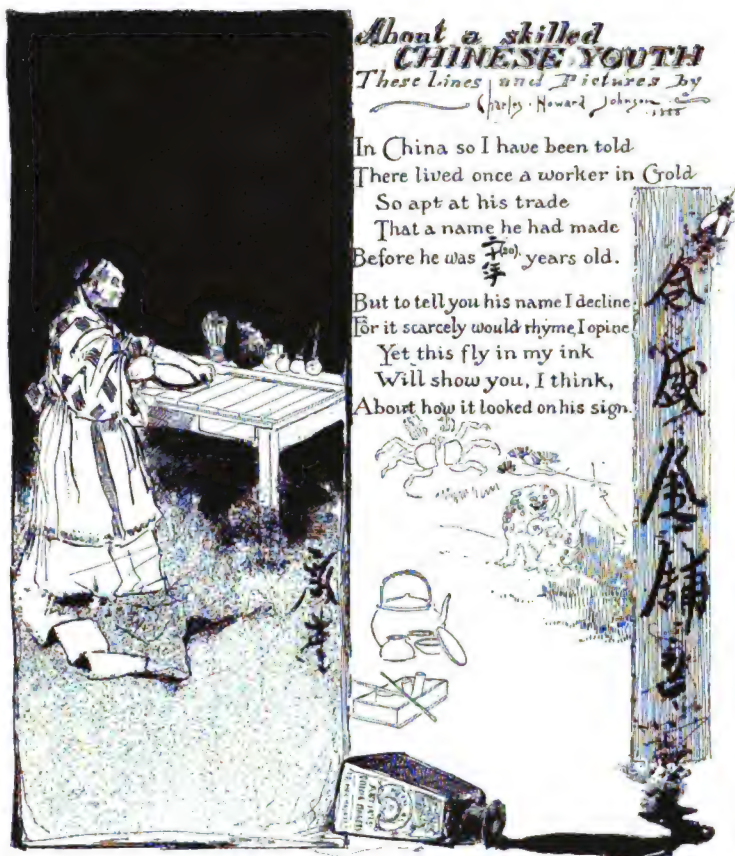 About a skilled
CHINESE YOUTH
These Lines and Pictures By
Charles Howard Johnson
1888
In China so I have been told
There lived once a worker in Gold
So apt at his trade
That a name he had made
Before he was 二十年 (20) years old.
But to tell you his name I decline
For it scarcely would rhyme, I opine
Yet this fly in my ink
Will show you, I think,
About how it looked on his sign.
盛
金
舖